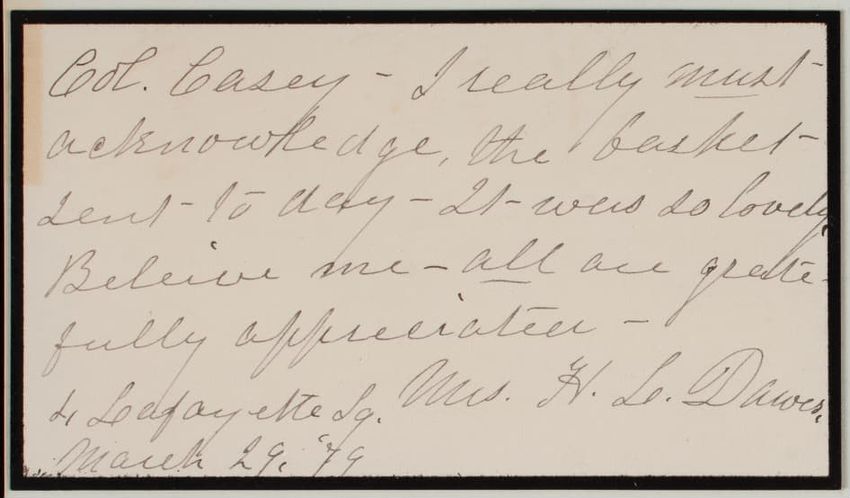 Col. Casey - I really must
acknowledge, the basket
sent to day - It was so lovely,
Beleive me - all are grate-
fully appreciated -
Mrs. H. L. Dawes,
4 Lafayette Sq.
March 29, '79